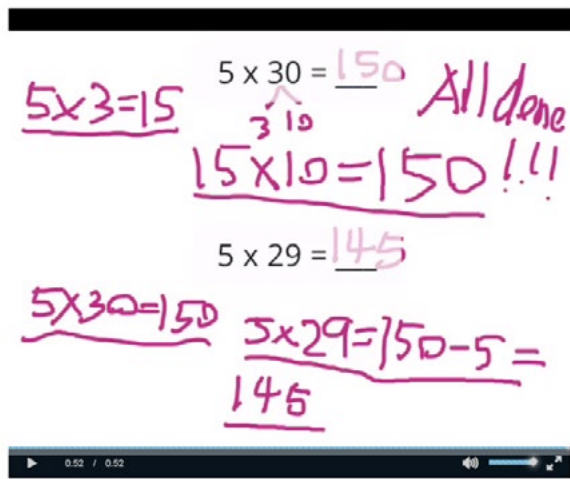 5 x 30 = 150
3 10
5x3=15
All done
!!!
15x10=150
5 x 29 = 145
5x30=150
5x29=150-5=
145
0:52 / 0:52